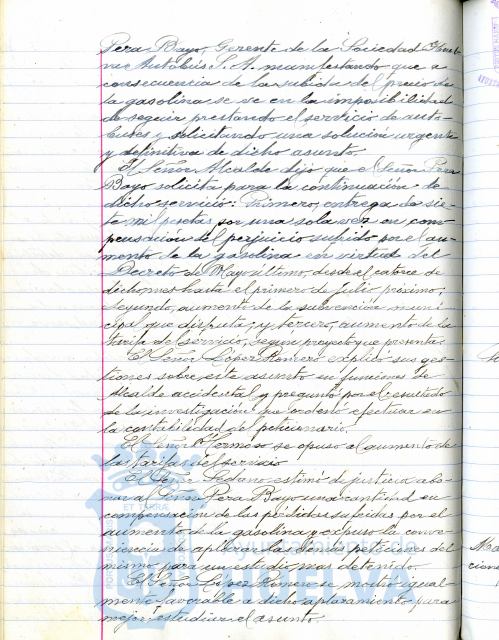 Pera Bayo, Gerente de la Sociedad Huelva
Autobús S. A. manifestando que a
consecuencia de la subida del precio de
la gasolina se ve en la imposibilidad
de seguir prestando el servicio de auto-
buses y solicitando una solución urgente
y definitiva de dicho asunto.
El Señor Alcalde dijo que el Señor Pera
Bayo solicita para la continuación de
dicho servicio: Primero, entrega de sie-
te mil pesetas por una sola vez en com-
pensación del perjuicio sufrido por el au-
mento de la gasolina en virtud del
Decreto de Mayo último, desde el catorce de
dicho mes hasta el primero de Julio próximo;
segundo, aumento de la subvención muni-
cipal que disfruta; y tercero, aumento de la
tarifa del servicio, según proyecto que presenta.
El Señor López Romero explicó sus ges-
tiones sobre este asunto en funciones de
Alcalde accidental y preguntó por el resultado
de la investigación que ordenó efectuar en
la contabilidad del peticionario.
El Señor Bermoso se opuso al aumento de
las tarifas del servicio
El Señor Sedano estimó de justicia abo-
nar al Señor Pera Bayo una cantidad en
compensación de las pérdidas sufridas por el
aumento de la gasolina y expuso la conve-
niencia de aplazar las demás peticiones del
mismo para un estudio mas detenido.
El Señor López Romero se mostró igual-
mente favorable a dicho aplazamiento para
mejor estudiar el asunto.
HUELVA